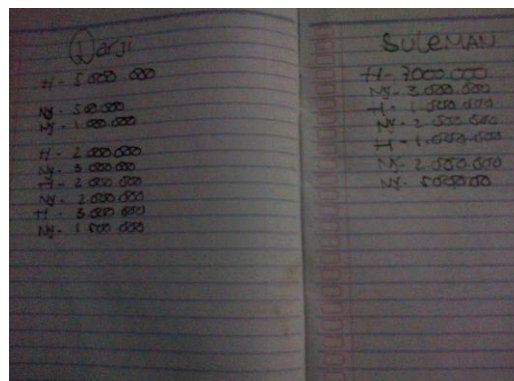 Darji
H - 5.000 000
Ny - 500.000
Ny - 1 000.000
H - 2 000.000
Ny - 3 000 000
H - 2 000.000
Ny - 2.000.000
H - 3.000.000
Ny - 1 500 000
SULEMAN
H - 7000.000
Ny - 3.000.000
H - 1.000.000
Ny - 2.500.000
H - 1.000.000
Ny - 2.500.000
Ny -